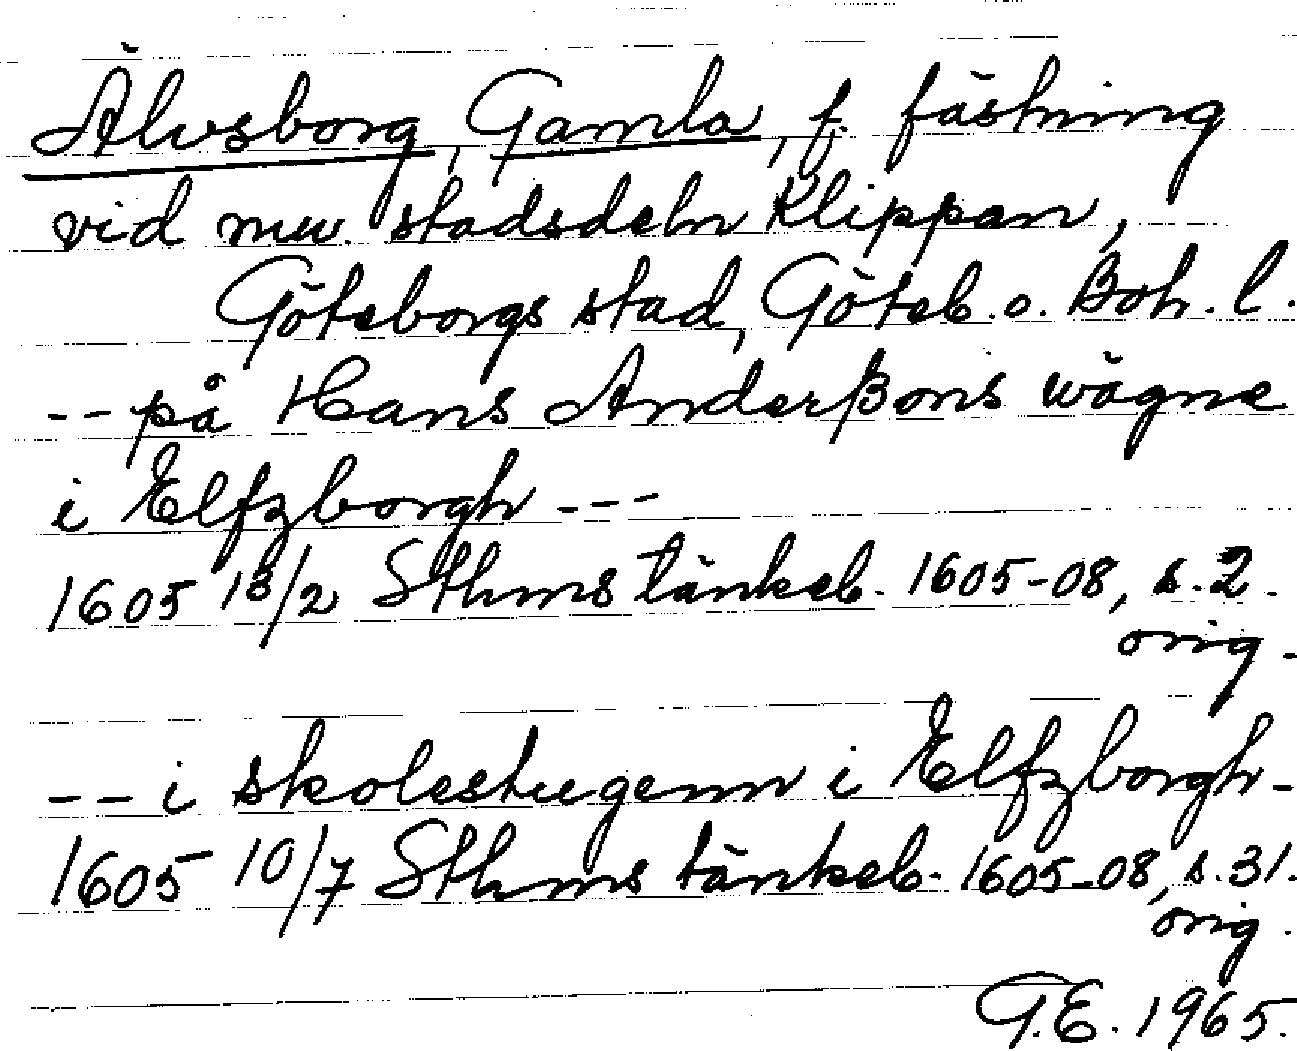 Älvsborg, Gamla, f. fästning
vid nuv. stadsdeln Klippan,
Göteborgs stad, Göteb. o. Boh. l.
-- på Hans Anderßons wägne
i Elfzborgh ---
1605 13/2 Sthms tänkeb. 1605-08, s. 2.
orig.
-- i skolestugenn i Elfzborgh -
1605 10/7 Sthms tänkeb. 1605-08, s. 31.
orig.
G.E. 1965.